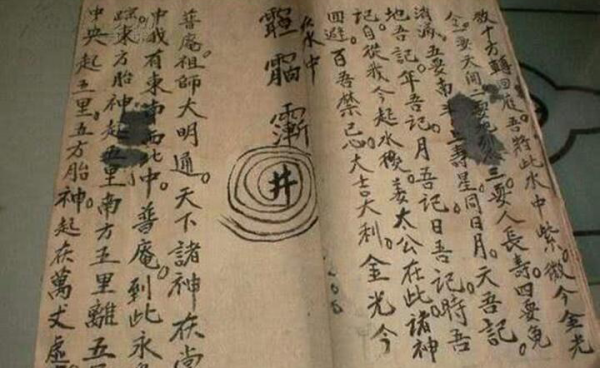 十方轉回座。吾將此水中紫微今金光
要天開二要三要人長壽四要免
消滿。五要南壽星。同日月。天吾記。
地吾記。年吾記。月吾記日吾記。時吾
記。自從我今起水後。姜太公在此。諸神
回避百吾禁忌。大吉大利。金光今
水中
漸
井
普庵祖師大明通。天下諸神在當
中我有東南西北中。普庵到此永
踪。東方胎神起五里南方五里離五
中央起五里五方胎神。起在萬丈虛